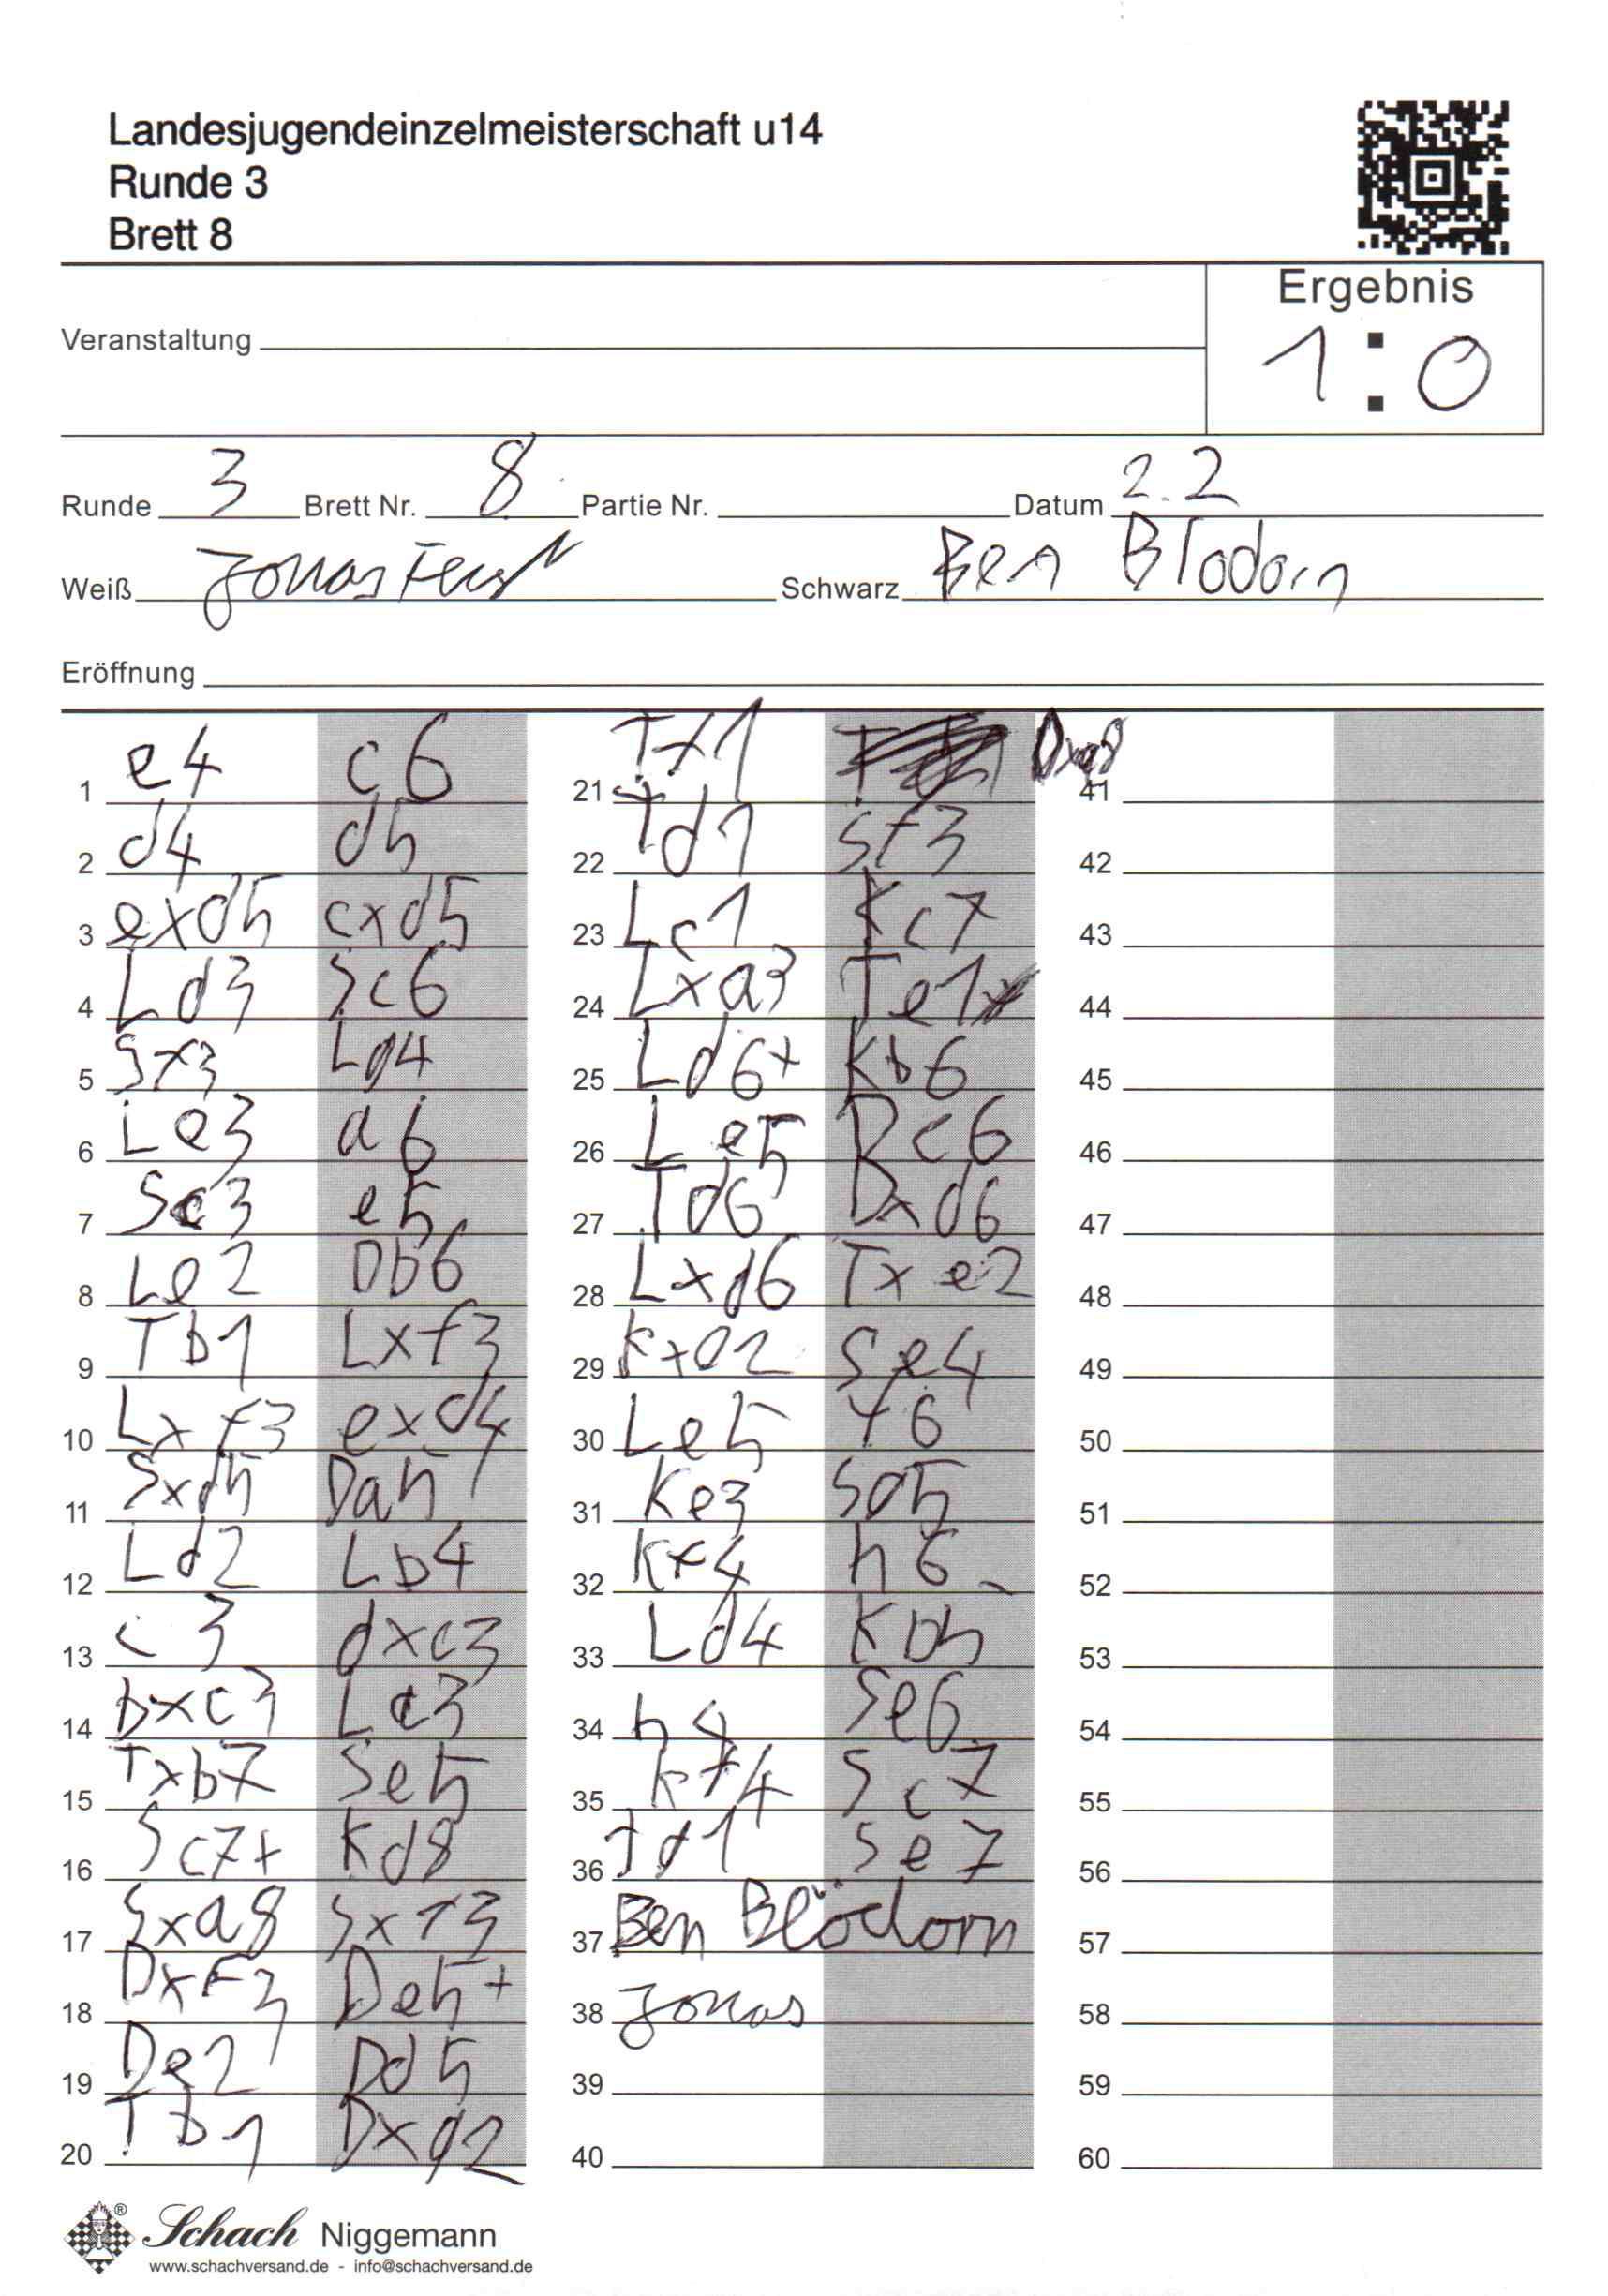 Landesjugendeinzelmeisterschaft u14
Runde 3
Brett 8
Ergebnis
1:0
Veranstaltung
Runde 3 Brett Nr. 8 Partie Nr. Datum 2.2
Weiß Jonas Schwarz Ben Blodorn
Eröffnung
1 e4 c6
2 d4 d5
3 exd5 cxd5
4 Ld3 Sc6
5 Sf3 Lg4
6 Le3 a6
7 Sc3 e5
8 Le2 Db6
9 Tb1 Lxf3
10 Lxf3 exd4
11 Sxd5 Da5
12 Ld2 Lb4
13 c3 dxc3
14 bxc3 Lc3
15 Txb7 Se5
16 Sc7+ Kd8
17 Sxa8 Sxf3
18 Dxf3 De5+
19 De2 Dd5
20 Tb1 Dxg2
21 Tf1 Dxa8
22 Td1 Sf3
23 Lc1 Kc7
24 Lxa3 Te1
25 Ld6+ Kb6
26 Le5 Dc6
27 Td6 Dxd6
28 Lxd6 Txe2
29 Kxe2 Se4
30 Le5 f6
31 Ke3 Sg5
32 Kf4 h6
33 Ld4 Kb5
34 h4 Se6
35 Kf4 Sc7
36 Td1 Se7
37 Ben Blödorn
38 Jonas
39
40
41
42
43
44
45
46
47
48
49
50
51
52
53
54
55
56
57
58
59
60
Schach Niggemann
www.schachversand.de - info@schachversand.de